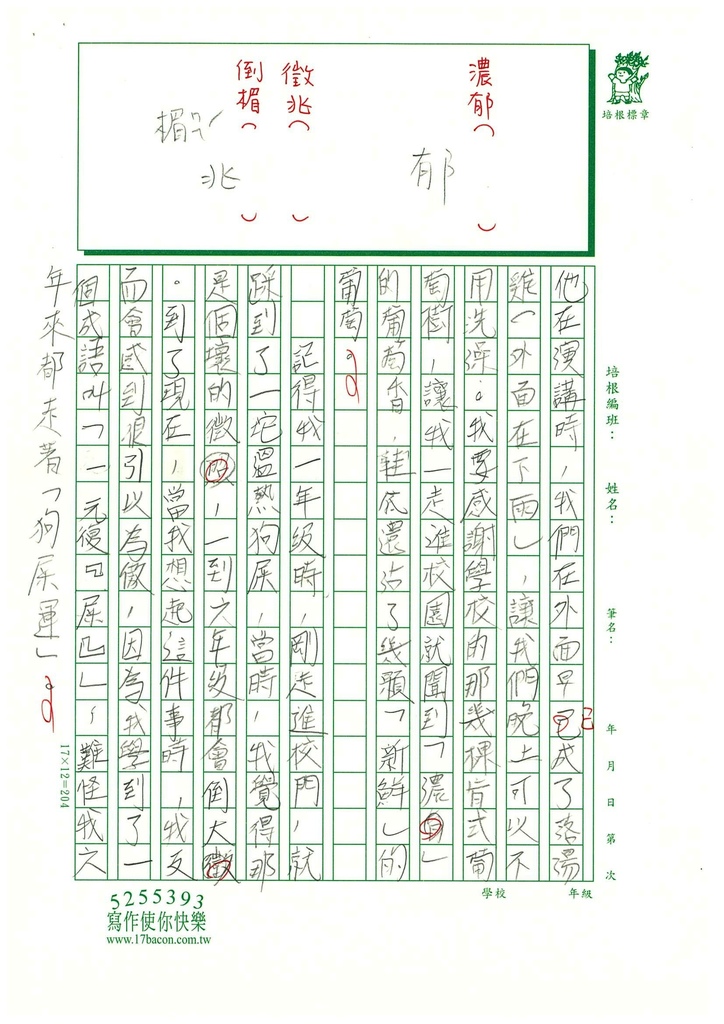 培根標章
濃郁（郁）
徵兆（兆）
倒楣（楣）
培根編班：　姓名：　筆名：　年　月　日　第　次
他在演講時，我們在外面早已成了落湯
已
雞（外面在下雨），讓我們晚上可以不
用洗澡。我要感謝學校的那幾棵盲式葡
萄樹，讓我一走進校園就聞到「濃郁」
的葡萄香，鞋底還沾了幾顆「新鮮」的
葡萄。
記得我一年級時，剛走進校門，就
踩到了一坨溫熱狗屎，當時，我覺得那
是個壞的徵，一到六年級都會倒大
。到了現在，當我想起這件事時，我反
而會感到很引以為傲，因為我學到了一
個成語叫「一元復『屎』」，難怪我六
年來都走著「狗屎運」
17×12=204
學校　年級
5255393
寫作使你快樂
www.17bacon.com.tw